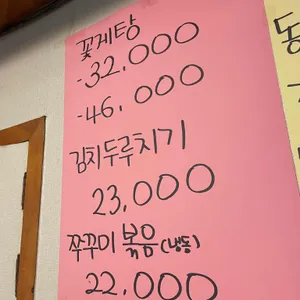 꽃게탕
-32,000
-46,000
김치두루치기
23,000
쭈꾸미볶음(냉동)
22,000
동